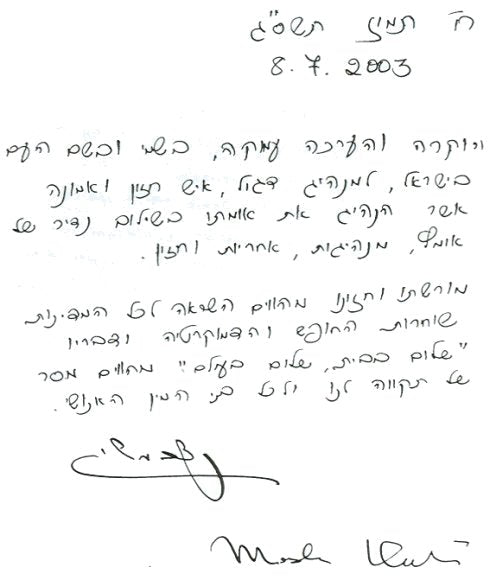 ח' תמוז תשס"ג
8.7.2003
הוקרה והערכה עמוקה, בשמי ובשם העם
בישראל, למנהיג דגול, איש חזון ואמונה
אשר הנהיג את אומתו בשילוב נדיר של
אומץ, מנהיגות, אחריות וחזון.
מורשתו וחזונו מהווים השראה לכל המדינות
שוחרות החופש והדמוקרטיה ודבריו
"שלום בבית, שלום בעולם" מהווים מסר
של תקווה לנו ולכל בני המין האנושי.
Moshe